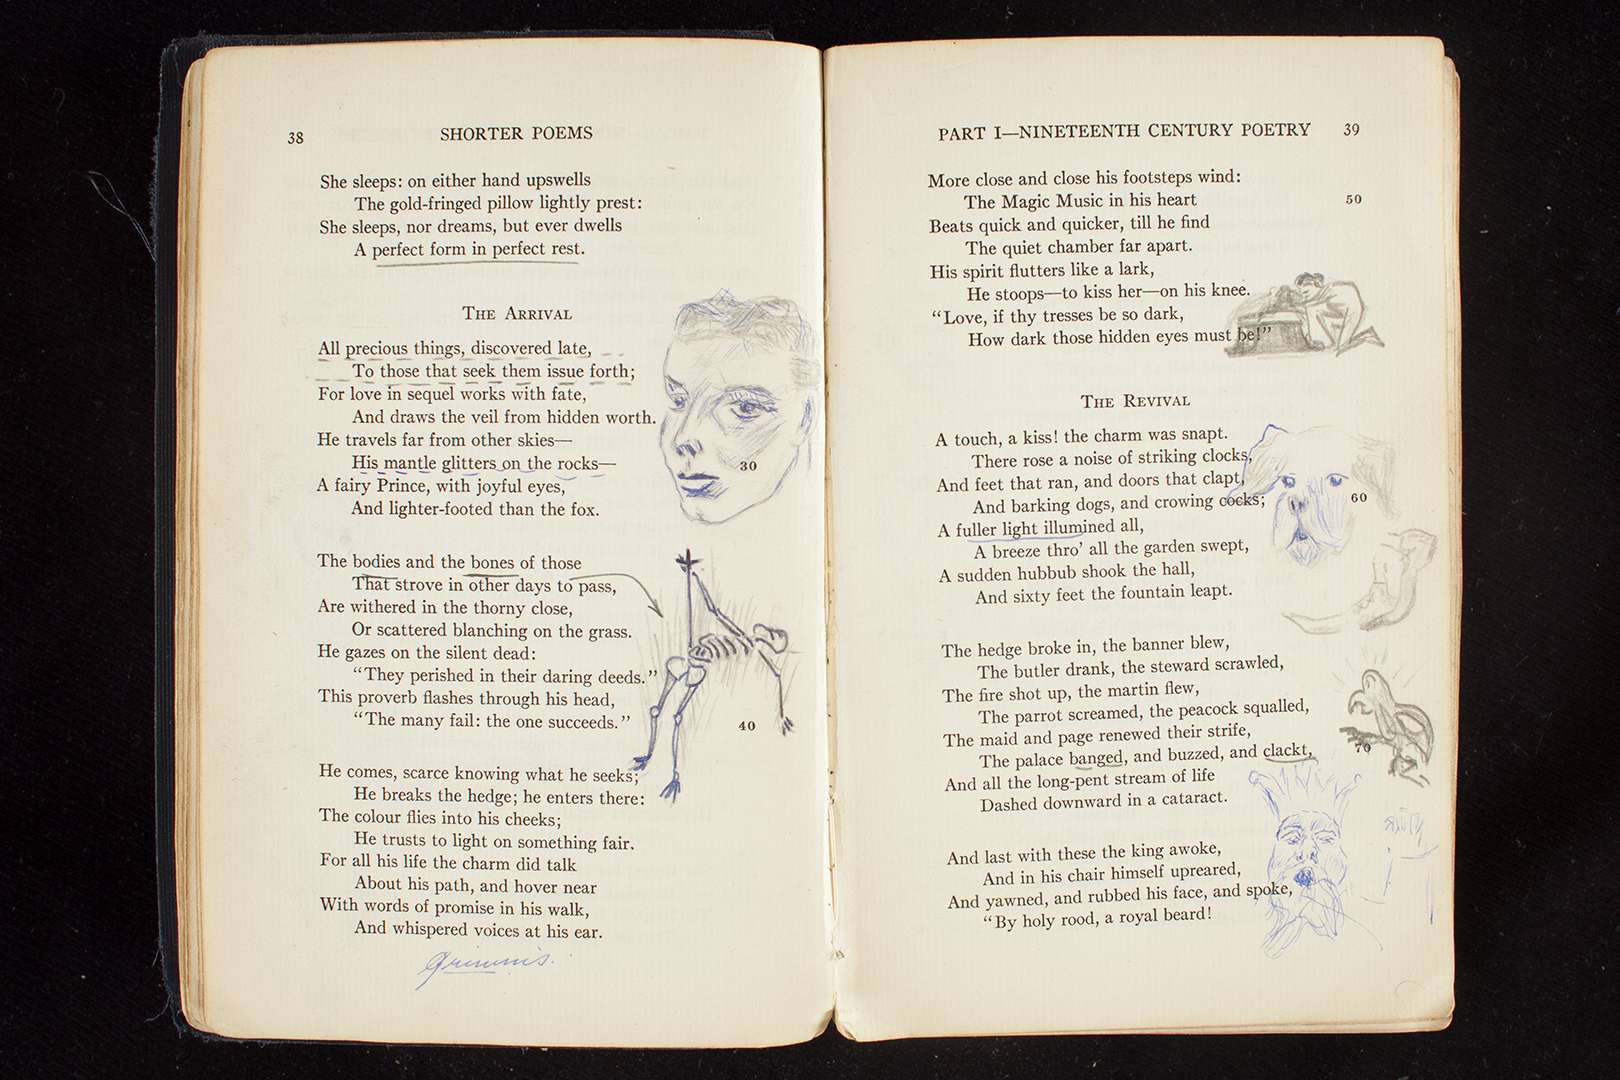 38 SHORTER POEMS
She sleeps: on either hand upswells
The gold-fringed pillow lightly prest:
She sleeps, nor dreams, but ever dwells
A perfect form in perfect rest.
THE ARRIVAL
All precious things, discovered late,
To those that seek them issue forth;
For love in sequel works with fate,
And draws the veil from hidden worth.
He travels far from other skies—
His mantle glitters on the rocks— 30
A fairy Prince, with joyful eyes,
And lighter-footed than the fox.
The bodies and the bones of those
That strove in other days to pass,
Are withered in the thorny close,
Or scattered blanching on the grass.
He gazes on the silent dead:
"They perished in their daring deeds."
This proverb flashes through his head,
"The many fail: the one succeeds." 40
He comes, scarce knowing what he seeks;
He breaks the hedge; he enters there:
The colour flies into his cheeks;
He trusts to light on something fair.
For all his life the charm did talk
About his path, and hover near
With words of promise in his walk,
And whispered voices at his ear.
Grimm's.
PART I—NINETEENTH CENTURY POETRY 39
More close and close his footsteps wind:
The Magic Music in his heart 50
Beats quick and quicker, till he find
The quiet chamber far apart.
His spirit flutters like a lark,
He stoops—to kiss her—on his knee.
"Love, if thy tresses be so dark,
How dark those hidden eyes must be!"
THE REVIVAL
A touch, a kiss! the charm was snapt.
There rose a noise of striking clocks,
And feet that ran, and doors that clapt,
And barking dogs, and crowing cocks; 60
A fuller light illumined all,
A breeze thro' all the garden swept,
A sudden hubbub shook the hall,
And sixty feet the fountain leapt.
The hedge broke in, the banner blew,
The butler drank, the steward scrawled,
The fire shot up, the martin flew,
The parrot screamed, the peacock squalled,
The maid and page renewed their strife,
The palace banged, and buzzed, and clackt, 70
And all the long-pent stream of life
Dashed downward in a cataract.
And last with these the king awoke,
And in his chair himself upreared,
And yawned, and rubbed his face, and spoke,
"By holy rood, a royal beard!